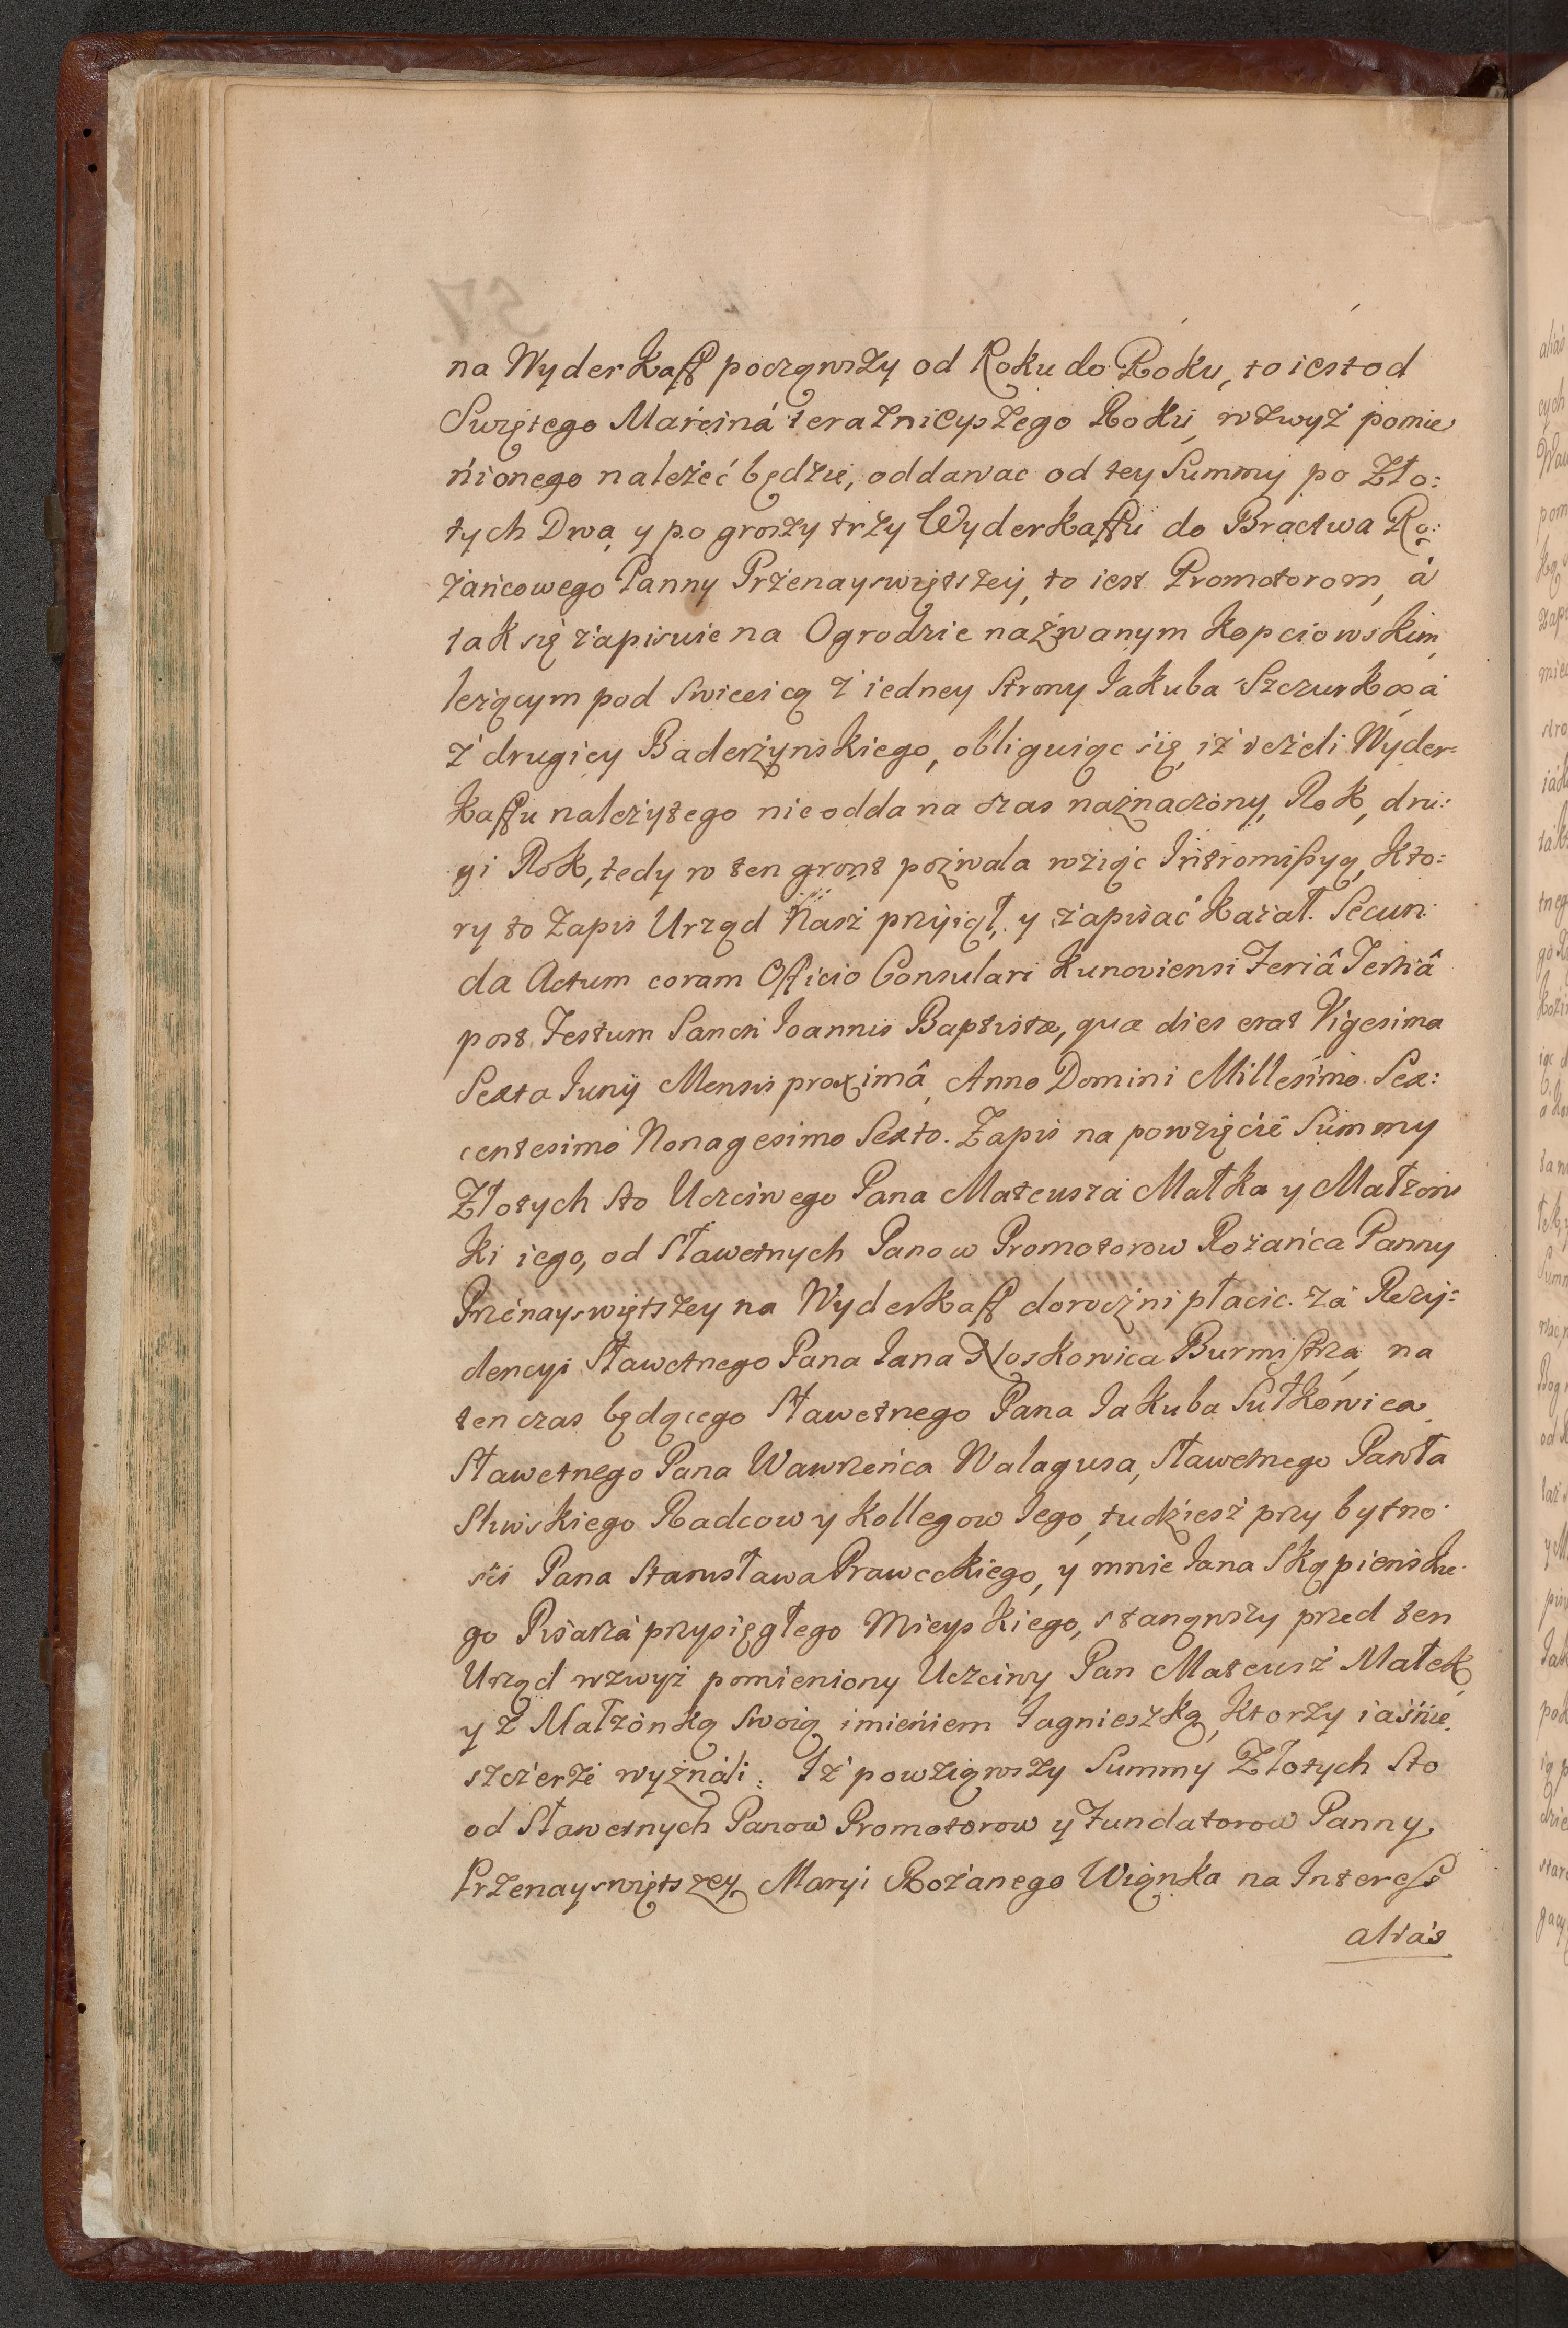 na Wyderkaff począwszy od Roku do Roku, to iest od
Swiętego Marciná teraznieyszego Roku, wzwyż pomie
nionego należeć będzie, oddawac od tey Summy po Zło:
tych Dwa, y po groszy trzy Wyderkaffu do Bractwa Ro:
żańcowego Panny Przenayswiętszey, to iest Promotorom, á
tak się zapisuie na Ogrodzie nazwanym Kopciowskim,
leżącym pod Swieeicą z iedney Strony Iakuba Szczurkoa á
z drugiey Baderżynskiego, obliguiąc się, iż ieżeli Wyder=
kaffu należytego nie odda na czas naznaczony, Rok, dru:
gi Rok, tedy w ten gront pozwala wziąc Intromissyą, kto:
ry to Zapis Urząd Nasz przyiął, y zapisać kazał. Secun
da Actum coram Officio Consulari Kunoviensi Feriâ Tertiâ
post Festum Sancti Ioannis Baptistæ, quæ dies erat Vigesima
Sexta Iunij Mensis proximâ, Anno Domini Millesimo Sex:
centesimo Nonagesimo Sexto. Zapis na powzięcie Summy
Złotych sto Uczciwego Pana Mateusza Małka y Małżon
ki iego, od Sławetnych Panow Promotorow Rożańca Panny
Przenayswiętszey na Wyderkaff doroczni płacic. Zá Rezy=
dencyi Sławetnego Pana Iana Noskowica Burmistrza, na
ten czas będącego Sławetnego Pana Iakuba Sułkowica,
Sławetnego Pana Wawrzeńca Walagusa, Sławetnego Pawła
Sliwskiego Radcow y Kollegow Iego, tudziesz przy bytno
sci Pana Stanisława Praweckiego, y mnie Iana Skąpienskie
go Pisarza przysięgłego Mieyskiego, stanąwszy przed ten
Urząd wzwyż pomieniony Uczciwy Pan Mateusz Małek,
y z Małżonką Swoią imieniem Iagnieszką, ktorzy iaśnie,
szczerze wyznali: Iż powziąwszy Summy Złotych Sto
od Sławetnych Panow Promotorow y Fundatorow Panny
Przenayswiętszey Maryi Rożanego Wiąnka na Interess
alias